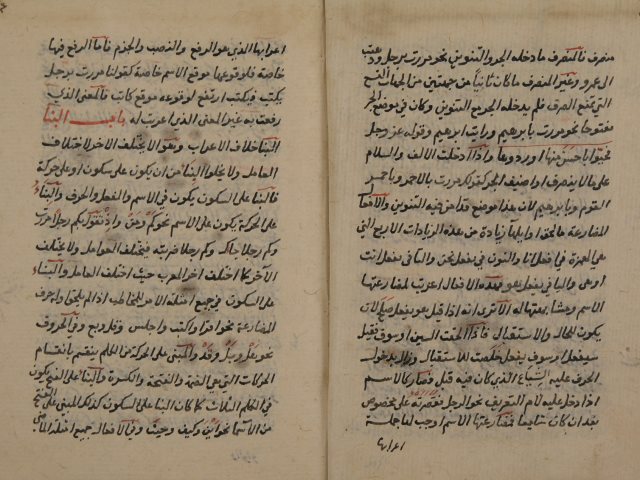 منصرف فالمنصرف ما دخله الجر والتنوين نحو مررت برجل ودعيت
الى عمرو وغير المنصرف ما كان ثانيا من جهتين من الجهات التسع
التي تمنع الصرف فلم يدخله الجر مع التنوين وكان في موضع الجر
مفتوحا نحو مررت بابرهيم ورايت ابرهيم وقوله عز وجل
فحيوا باحسن منها او ردوها واذا دخلت الالف واللام
على ما لا ينصرف او اضيف الى كقولك مررت بالاحمر وباحمر
القوم وبابرهيم لان هذا موضع قد امن فيه التنوين والافعال
المضارعة ما لحق اوايلها زيادة من هذه الزيادات الاربع التي
هي الهمزة في افعل انا والنون في نفعل نحن والتا في تفعل انت
او هي واليا في يفعل هو فهذه الافعال اعربت لمضارعتها
الاسم ومشابهتها له الا ترى انه اذا قيل هو يفعل صلح لان
يكون للحال والاستقبال فاذا الحقت السين او سوف فقيل
سيفعل او سوف يفعل خلصت للاستقبال وزال بدخول
الحرف عليه الشياع الذي كان فيه قبل فصار كالاسم
اذا دخل عليه لام التعريف نحو الرجل فقصرته على مخصوص
بعد ان كان شايعا فمضارعتها الاسم اوجب لها جملة
اعرابها
اعرابها الذي هو الرفع والنصب والجزم فاما الرفع فيها
خاصة فلوقوعها موقع الاسم خاصة كقولنا مررت برجل
يكتب فيكتب ارتفع لوقوعه موقع كاتب فالمعنى الذي
رفعت به غير المعنى الذي اعربت له باب البنا
البنا خلاف الاعراب وهو الا يختلف الاخر لاختلاف
العامل ولا يخلو البنا من ان يكون على سكون او على حركة
فالبنا على السكون يكون في الاسم والفعل والحرف والبنا
على الحركة يكون على الاسم نحو كم ومن واذ تقول بكم رجلا مررت
وكم رجلا جاك وكم رجلا ضربته فتختلف العوامل ولا يختلف
الاخر كما اختلف اخر المعرب حيث اختلف العامل والبنا
على السكون في جميع امثلة الامر للمخاطب اذا لم يلحق اوله حرف
المضارعة نحو اقرا واكتب واجلس وفي الحروف
نحو هل وبل وقد والمبني على الحركة من الكلم ينقسم بانقسام
الحركات التي هي الضمة والفتحة والكسرة والبنا على الفتح يكون
في الكلم الثلاث كما كان البنا على السكون كذلك فالمبني على الفتح
من الاسما نحو اين وكيف وحيث وفي الافعال جميع امثلة الماضي